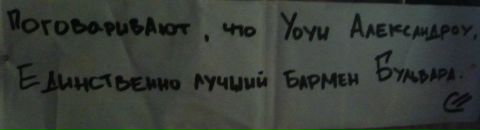 Поговаривают, что Уоуи Александроу,
Единственно лучший бармен Бульвара.